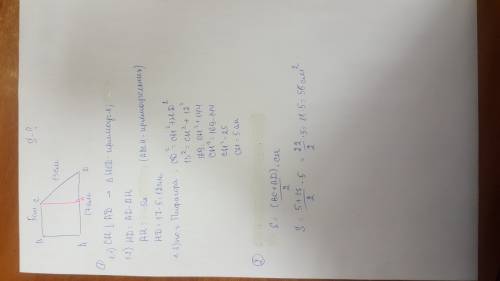 S-?
B 5см C
13см
A 17см D
①
1.1) CH ⊥ AD → △HCD - прямоуг.
1.2) HD = AD-AH
AH = 5см (ABCH - прямоугольник)
HD = 17-5=12см
1.3) по т. Пифагора: CD² = CH²+HD²
13² = CH² + 12²
169 = CH²+144
CH² = 169-144
CH² = 25
CH = 5 см
②
S = (BC+AD)/2 · CH
S = 5+17/2 · 5 = 22/2 · 5 = 11·5 = 55 см²